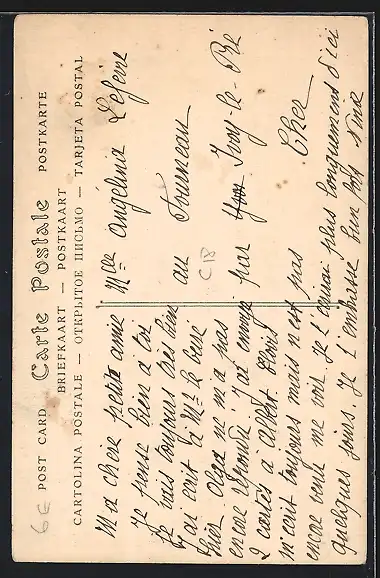 POST CARD Carte Postale POSTKARTE
BRIEFKAART — POSTKAART
CARTOLINA POSTALE — ОТКРЫТОЕ ПИСЬМО — TARJETA POSTAL
Ma chère petite amie
Je pense bien à toi
Je vais toujours très bien
J'ai écrit à Mr le
hier Olga ne m'a pas
encore répondu J'ai envoyé
2 cartes à Albert
m'écrit toujours mais n'est pas
encore venu me voir. Je t'écrirai plus longuement d'ici
quelques jours. Je t'embrasse bien fort
Mlle Angélina Lefèvre
au
par Ivoy-le-Pré
Cher
C18
6E